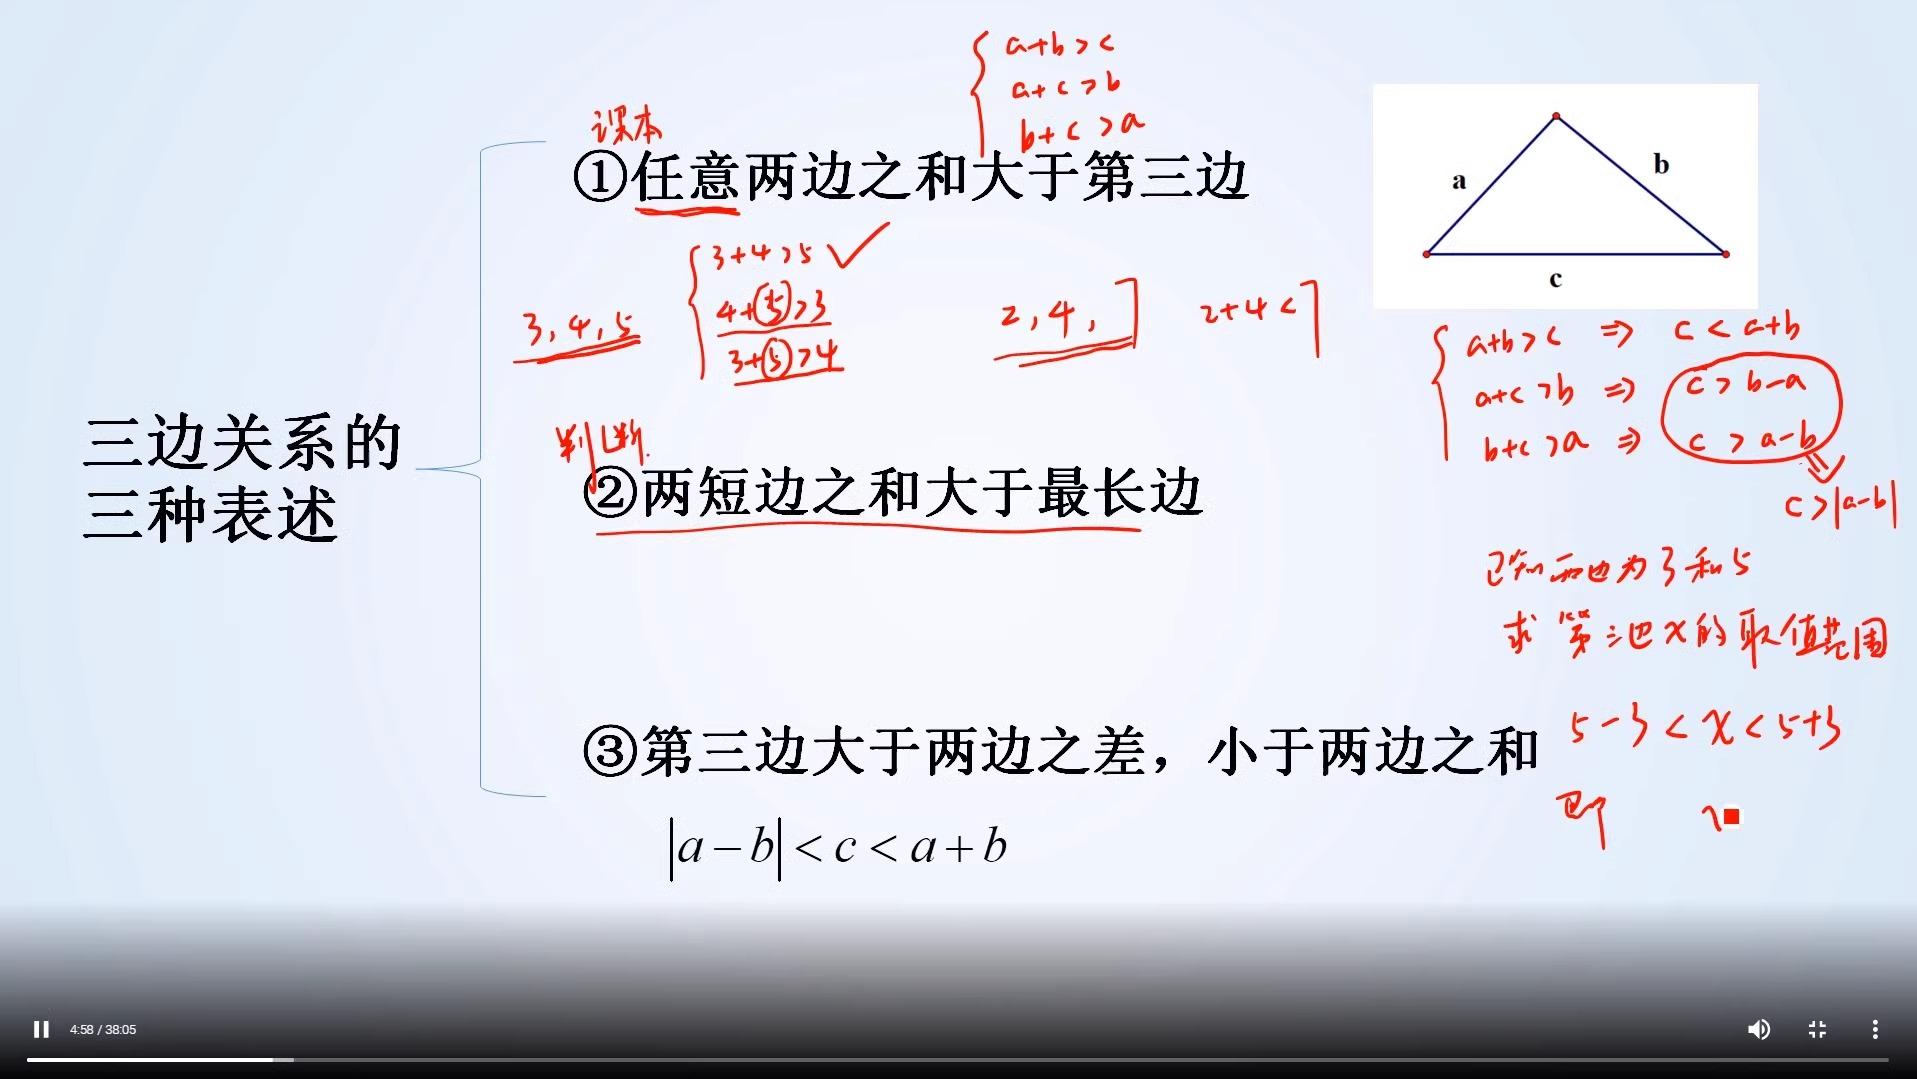 a+b>c
a+c>b
b+c>a
课本
①任意两边之和大于第三边
a
b
c
3+4>5
4+5>3
3+5>4
3,4,5
2,4,7
2+4<7
a+b>c ⇒ c<a+b
a+c>b ⇒ c>b-a
b+c>a ⇒ c>a-b
c>|a-b|
三边关系的
三种表述
判断.
②两短边之和大于最长边
已知两边为3和5
求第三边x的取值范围
③第三边大于两边之差，小于两边之和
5-3<x<5+3
即
|a-b|<c<a+b
4:58 / 38:05